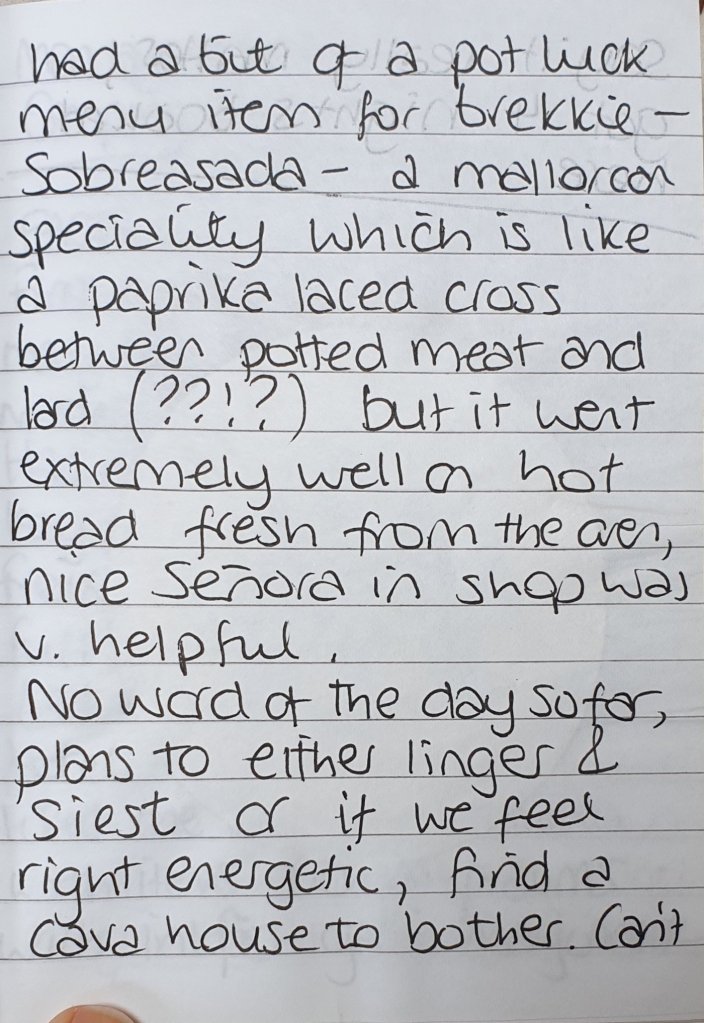 had a bit of a pot luck
menu item for brekkie -
Sobreasada - a mallorcan
speciality which is like
a paprika laced cross
between potted meat and
lard (??!?) but it went
extremely well on hot
bread fresh from the oven,
nice Señora in shop was
v. helpful.
No word of the day so far,
plans to either linger &
siest or if we feel
right energetic, find a
cava house to bother. Can't